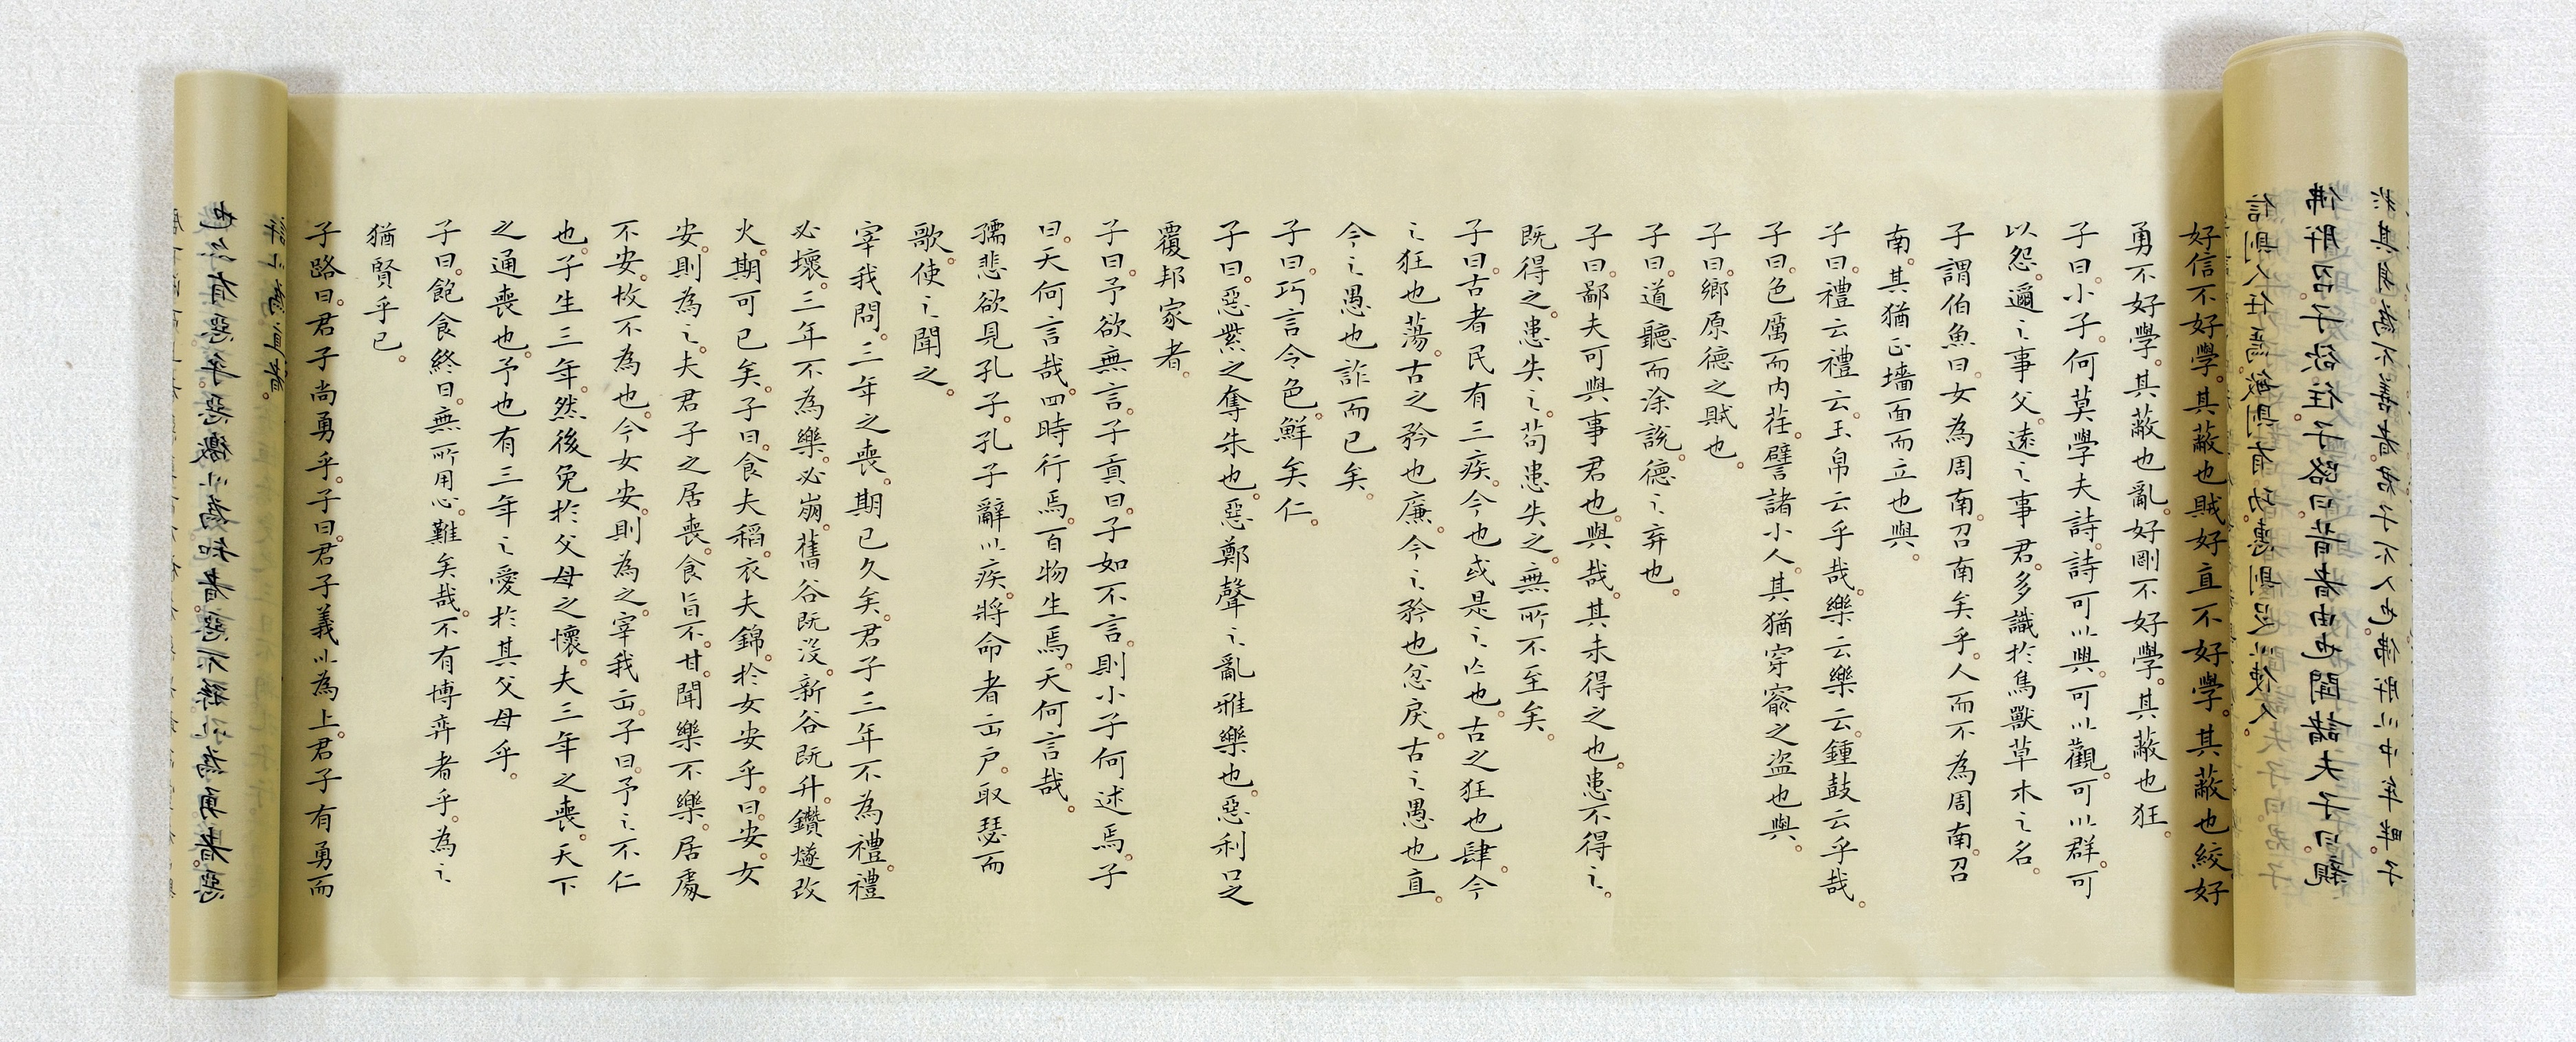 信則人任焉。敏則有功。惠則足以使人。
佛肸召。子欲往。子路曰。昔者由也聞諸夫子曰。親
於其身為不善者。君子不入也。佛肸以中牟畔。子
好信不好學。其蔽也賊。好直不好學。其蔽也絞。好
勇不好學。其蔽也亂。好剛不好學。其蔽也狂。
子曰。小子。何莫學夫詩。詩可以興。可以觀。可以群。可
以怨。邇之事父。遠之事君。多識於鳥獸草木之名。
子謂伯魚曰。女為周南。召南矣乎。人而不為周南。召
南。其猶正墻面而立也與。
子曰。禮云禮云。玉帛云乎哉。樂云樂云。鍾鼓云乎哉。
子曰。色厲而内荏。譬諸小人。其猶穿窬之盜也與。
子曰。鄉原。德之賊也。
子曰。道聽而涂說。德之弃也。
子曰。鄙夫可與事君也與哉。其未得之也。患不得之。
既得之。患失之。苟患失之。無所不至矣。
子曰。古者民有三疾。今也或是之亡也。古之狂也肆。今
之狂也蕩。古之矜也廉。今之矜也忿戾。古之愚也直。
今之愚也詐而已矣。
子曰。巧言令色。鮮矣仁。
子曰。惡紫之奪朱也。惡鄭聲之亂雅樂也。惡利口之
覆邦家者。
子曰。予欲無言。子貢曰。子如不言。則小子何述焉。子
曰。天何言哉。四時行焉。百物生焉。天何言哉。
孺悲欲見孔子。孔子辭以疾。將命者出户。取瑟而
歌。使之聞之。
宰我問。三年之喪。期已久矣。君子三年不為禮。禮
必壞。三年不為樂。樂必崩。舊谷既沒。新谷既升。鑽燧改
火。期可已矣。子曰。食夫稻。衣夫錦。於女安乎。曰。安。女
安。則為之。夫君子之居喪。食旨不甘。聞樂不樂。居處
不安。故不為也。今女安。則為之。宰我出。子曰。予之不仁
也。子生三年。然後免於父母之懷。夫三年之喪。天下
之通喪也。予也有三年之愛於其父母乎。
子曰。飽食終日。無所用心。難矣哉。不有博弈者乎。為之
猶賢乎已。
子路曰。君子尚勇乎。子曰。君子義以為上。君子有勇而
也亦有惡乎。惡徼以為知者。惡不孫以為勇者。惡
訐以為直者。